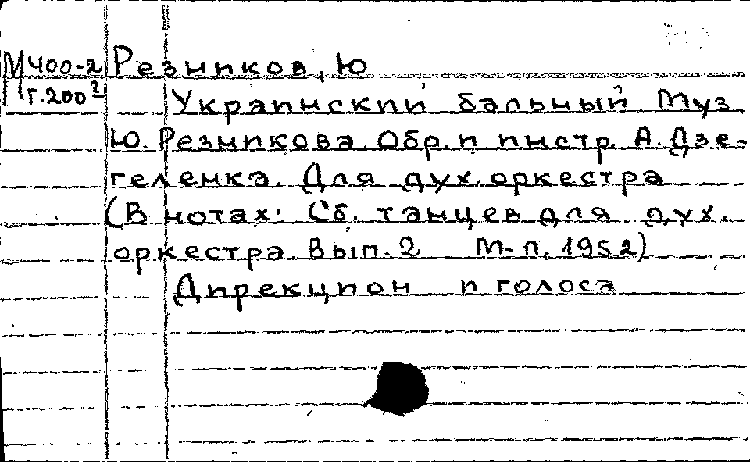 М400-2 Резников, Ю
Г.200²
Украинский бальный Муз
Ю. Резникова Обр. и инстр. А. Дзе-
геленка. Для дух. оркестра
(В нотах: Сб. танцев для дух.
оркестра. Вып. 2 М-Л, 1952)
Дирекцион и голоса